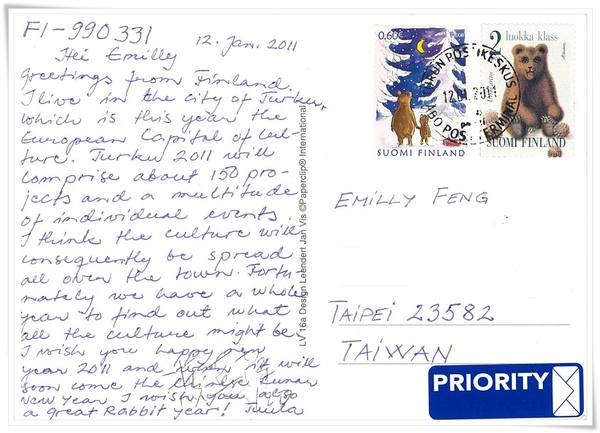 FI-990331
12. Jan. 2011
Hei Emilly
Greetings from Finland.
I live in the city of Turku,
which is this year the
European Capital of Cul-
ture. Turku 2011 will
comprise about 150 pro-
jects and a multitude
of individual events.
I think the culture will
consequently be spread
all over the town. Fortu-
nately we have a whole
year to find out what
all the culture might be.
I wish you happy new
year 2011 and when it will
soon come the Chinese Lunar
New Year I wish you also
a great Rabbit year! Tuula
LV 16a Design Leendert Jan Vis ©Paperclip® International
0,60€
SUOMI FINLAND
2 luokka klass
SUOMI FINLAND
TURUN POSTIKESKUS
12.01.2011
POSTTERMINAL
EMILLY FENG
TAIPEI 23582
TAIWAN
PRIORITY